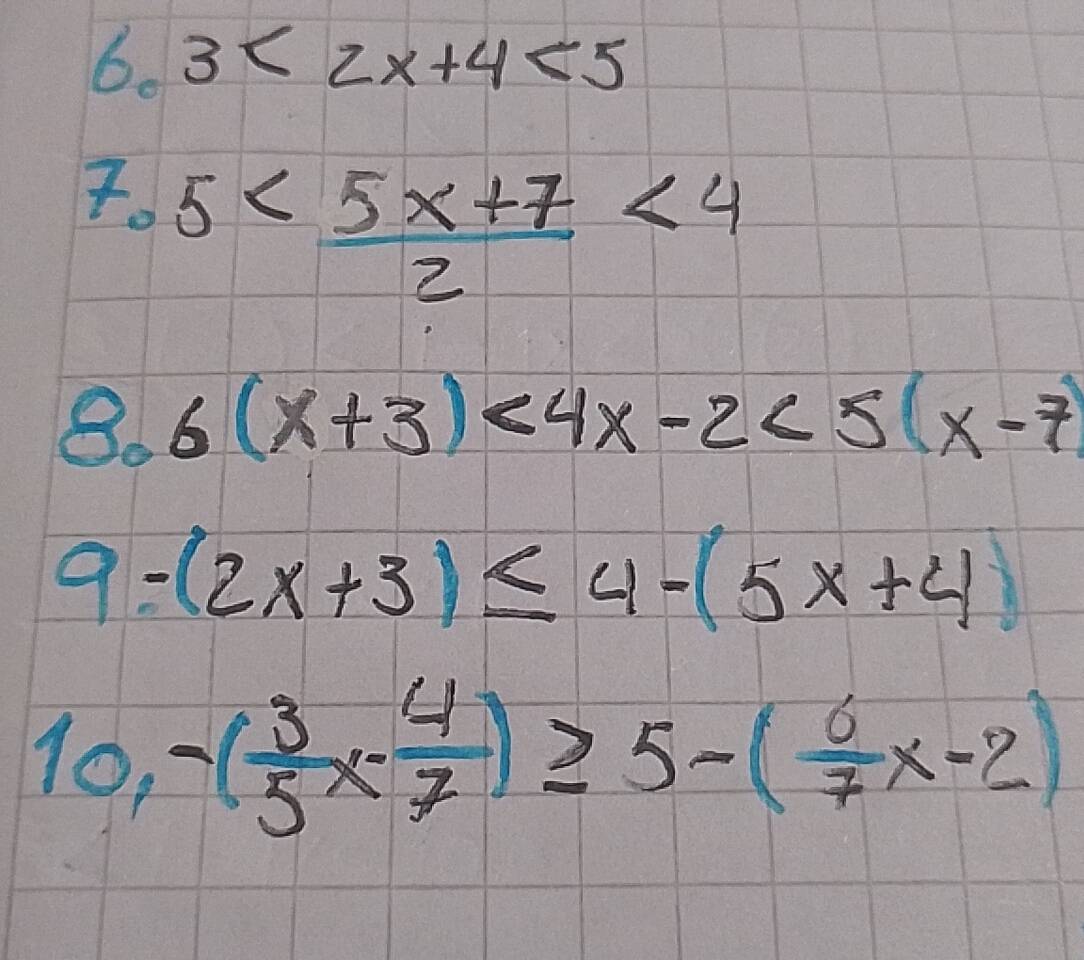 6. 3 < 2x+4 < 5
7. 5 < \frac{5x+7}{2} < 4
8. 6(x+3) < 4x-2 < 5(x-7)
9. -(2x+3) ≤ 4-(5x+4)
10, -(\frac{3}{5}x-\frac{4}{7}) ≥ 5-(\frac{6}{7}x-2)